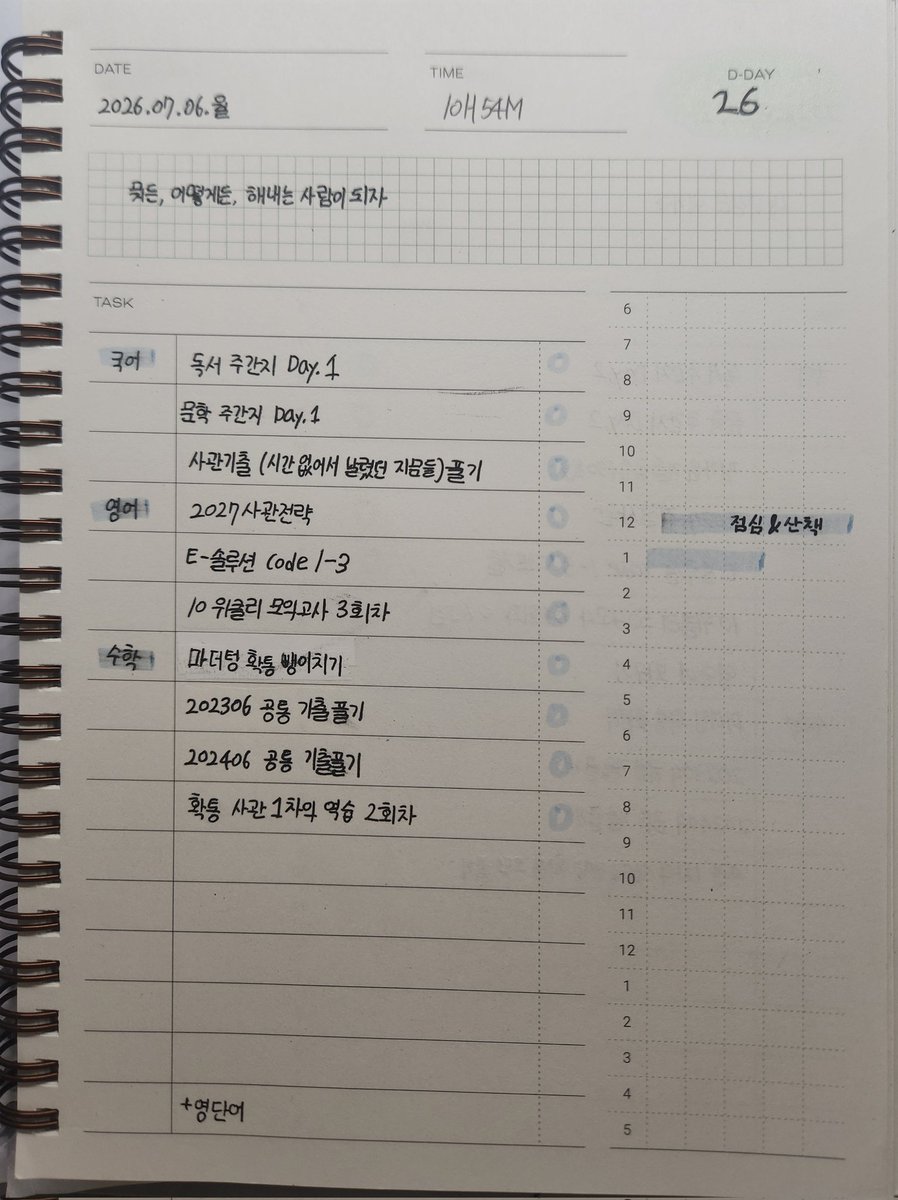 DATE
2026.07.06.월
TIME
10H 54M
D-DAY
26
뭐든, 어떻게든, 해내는 사람이 되자
TASK
국어
독서 주간지 Day.1
문학 주간지 Day.1
사관기출 (시간 없어서 날렸던 지문들) 풀기
영어
2027 사관전략
E-솔루션 Code 1-3
10 위클리 모의고사 3회차
수학
마더텅 확통 뺑이치기
202306 공통 기출풀기
202406 공통 기출풀기
확통 사관 1차의 역습 2회차
+영단어
6
7
8
9
10
11
12 점심 & 산책
1
2
3
4
5
6
7
8
9
10
11
12
1
2
3
4
5